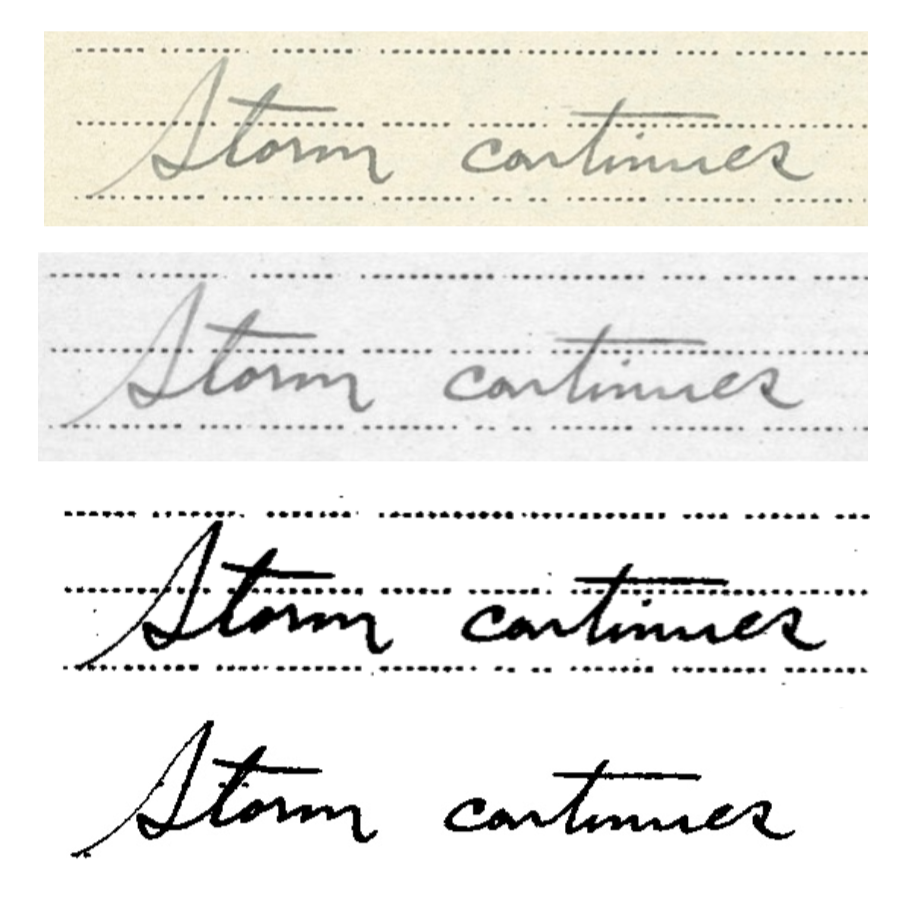 Storm continues
Storm continues
Storm continues
Storm continues